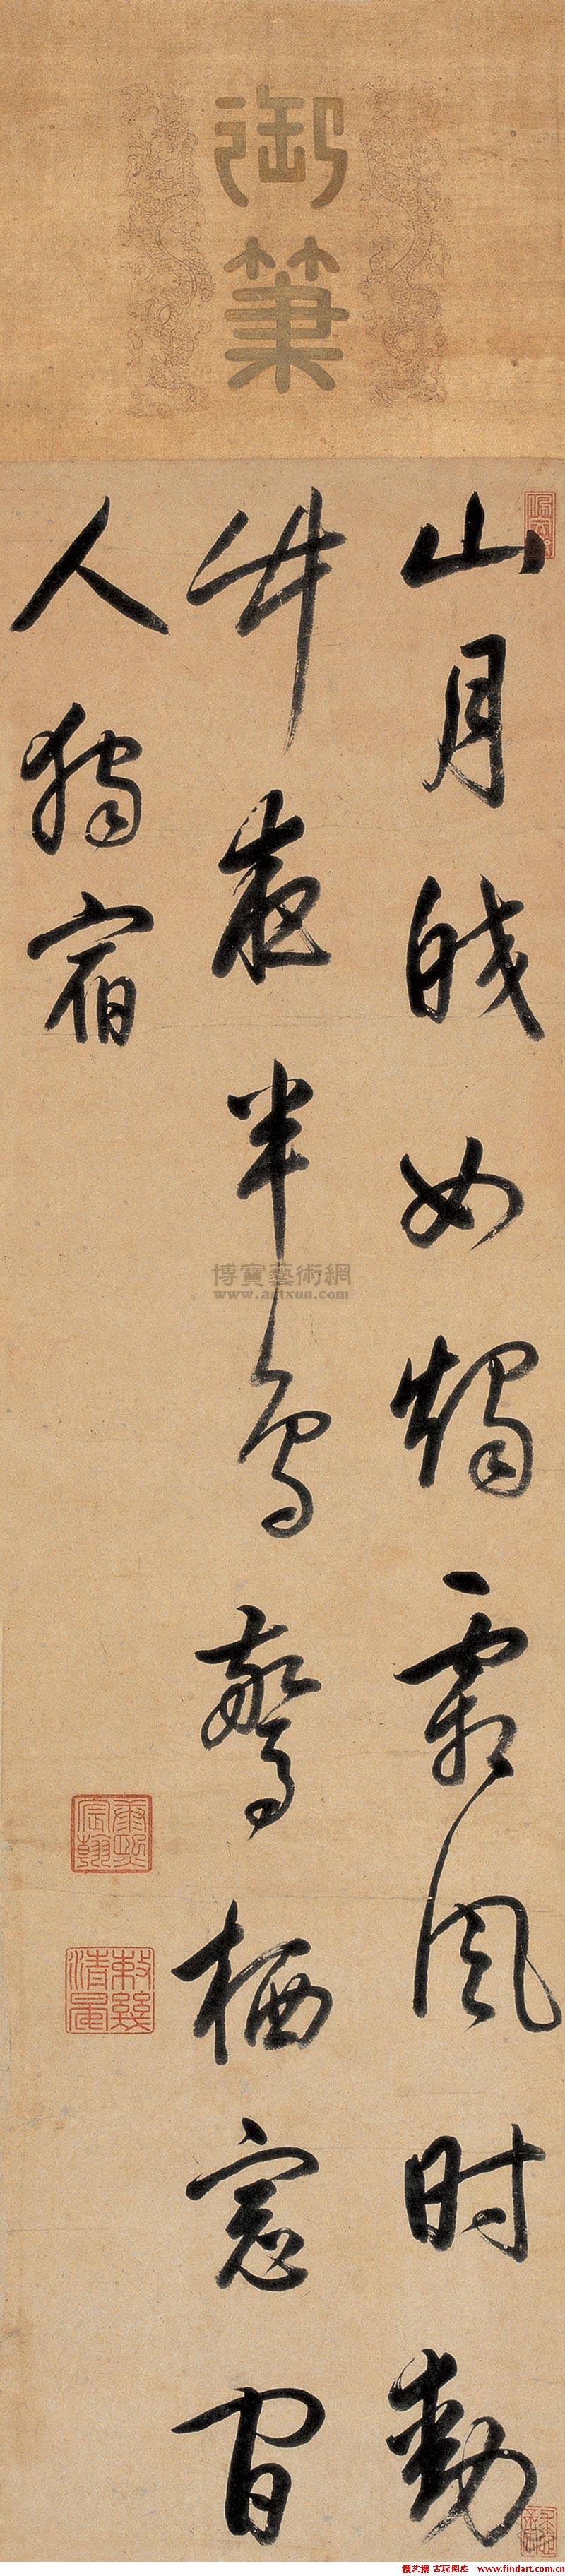 御筆
山月皎如燭霜风时動
竹夜半鳥驚栖窓間
人獨宿
康熙宸翰
敕幾清晏
博寶藝術網
www.artxun.com
搜艺搜 古玩图库 www.findart.com.cn